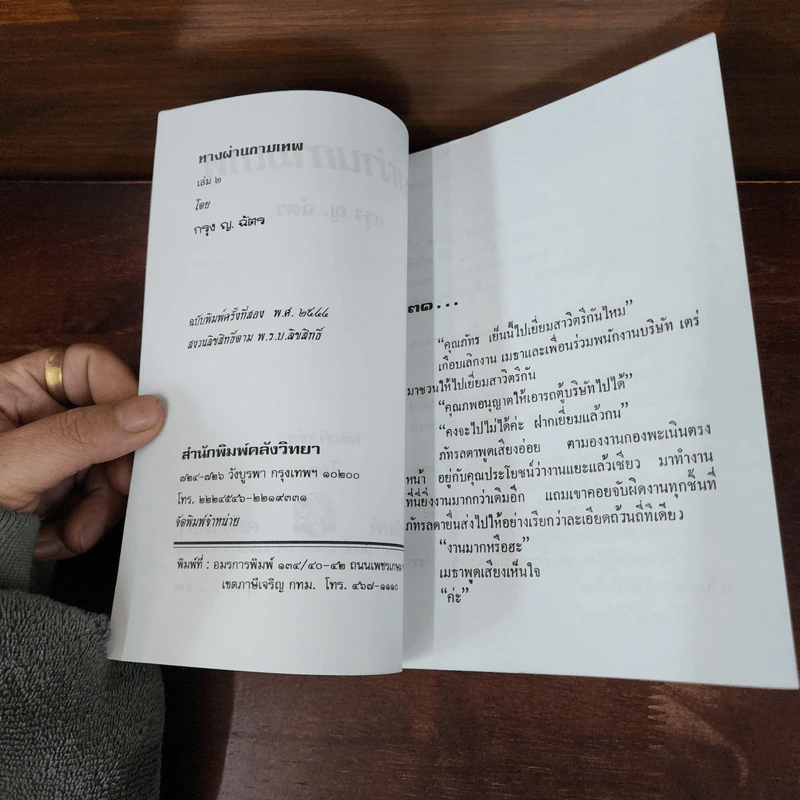 ทางผ่านกามเทพ
เล่ม ๒
โดย
กรุง ญ. ฉัตร
ฉบับพิมพ์ครั้งที่สอง พ.ศ. ๒๕๔๔
สงวนลิขสิทธิ์ตาม พ.ร.บ.ลิขสิทธิ์
สำนักพิมพ์คลังวิทยา
๗๒๔-๗๒๖ วังบูรพา กรุงเทพฯ ๑๐๒๐๐
โทร. ๒๒๒๔๕๔๖-๒๒๑๙๓๓๑
จัดพิมพ์จำหน่าย
พิมพ์ที่ : อมรการพิมพ์ ๑๓๔/๔๐-๔๒ ถนนเพชรเกษม
เขตภาษีเจริญ กทม. โทร. ๔๖๗-๑๑๑๐
๓๑...
“คุณภัทร เย็นนี้ไปเยี่ยมสาวิตรีกันไหม”
เกือบเลิกงาน เมธาและเพื่อนร่วมพนักงานบริษัท เตร่
มาชวนให้ไปเยี่ยมสาวิตรีกัน
“คุณภพอนุญาตให้เอารถตู้บริษัทไปได้”
“คงจะไปไม่ได้ค่ะ ฝากเยี่ยมแล้วกน”
ภัทรลดาพูดเสียงอ่อย ตามองงานกองพะเนินตรง
หน้า อยู่กับคุณประโยชน์ว่างานแยะแล้วเชียว มาทำงาน
ที่นี่ยิ่งงานมากกว่าเดิมอีก แถมเขาคอยจับผิดงานทุกชิ้นที่
ภัทรลดายื่นส่งไปให้อย่างเรียกว่าละเอียดถ้วนถี่ทีเดียว
“งานมากหรือฮะ”
เมธาพูดเสียงเห็นใจ
“ค่ะ”